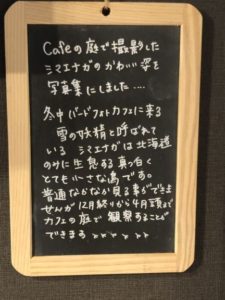 Cafeの庭で撮影した
シマエナガのかわいい姿を
写真集にしました....
冬中バードフォトカフェに来る
雪の妖精と呼ばれて
いる シマエナガは北海道
のみに生息する真っ白く
とても小さな鳥である。
普通なかなか見る事ができま
せんが12月終りから4月頭まで
カフェの庭で観察することが
できます